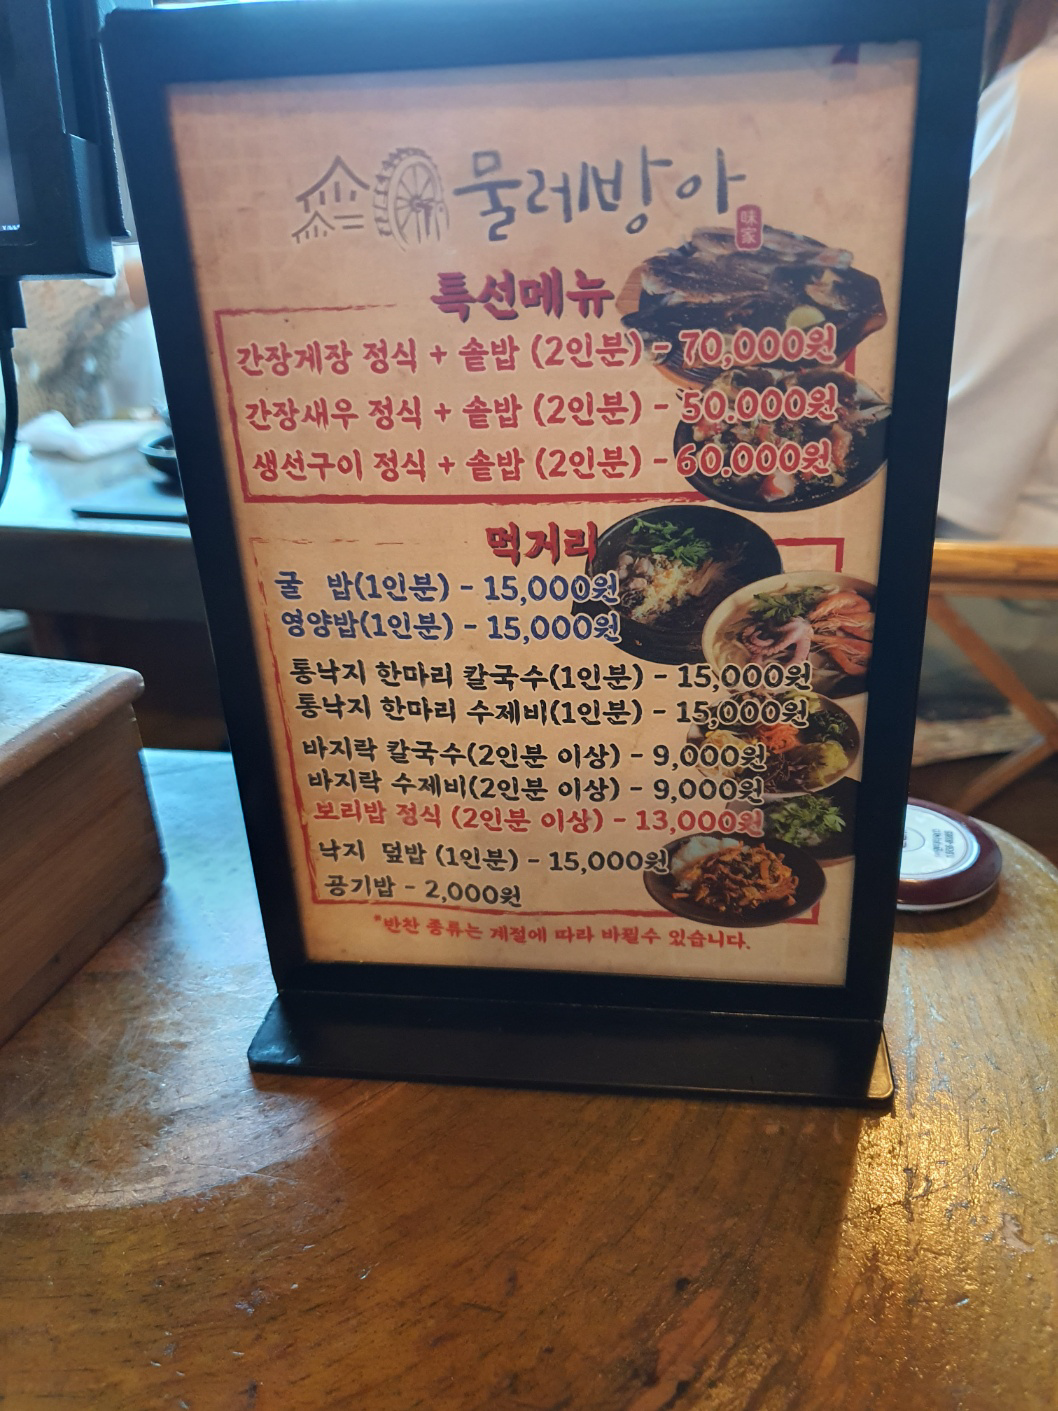 물레방아
味家
특선메뉴
간장게장 정식 + 솥밥 (2인분) - 70,000원
간장새우 정식 + 솥밥 (2인분) - 50.000원
생선구이 정식 + 솥밥 (2인분) - 60.000원
먹거리
굴 밥(1인분) - 15,000원
영양밥(1인분) - 15,000원
통낙지 한마리 칼국수(1인분) - 15,000원
통낙지 한마리 수제비(1인분) - 15,000원
바지락 칼국수(2인분 이상) - 9,000원
바지락 수제비(2인분 이상) - 9,000원
보리밥 정식 (2인분 이상) - 13,000원
낙지 덮밥 (1인분) - 15,000원
공기밥 - 2,000원
*반찬 종류는 계절에 따라 바뀔수 있습니다.